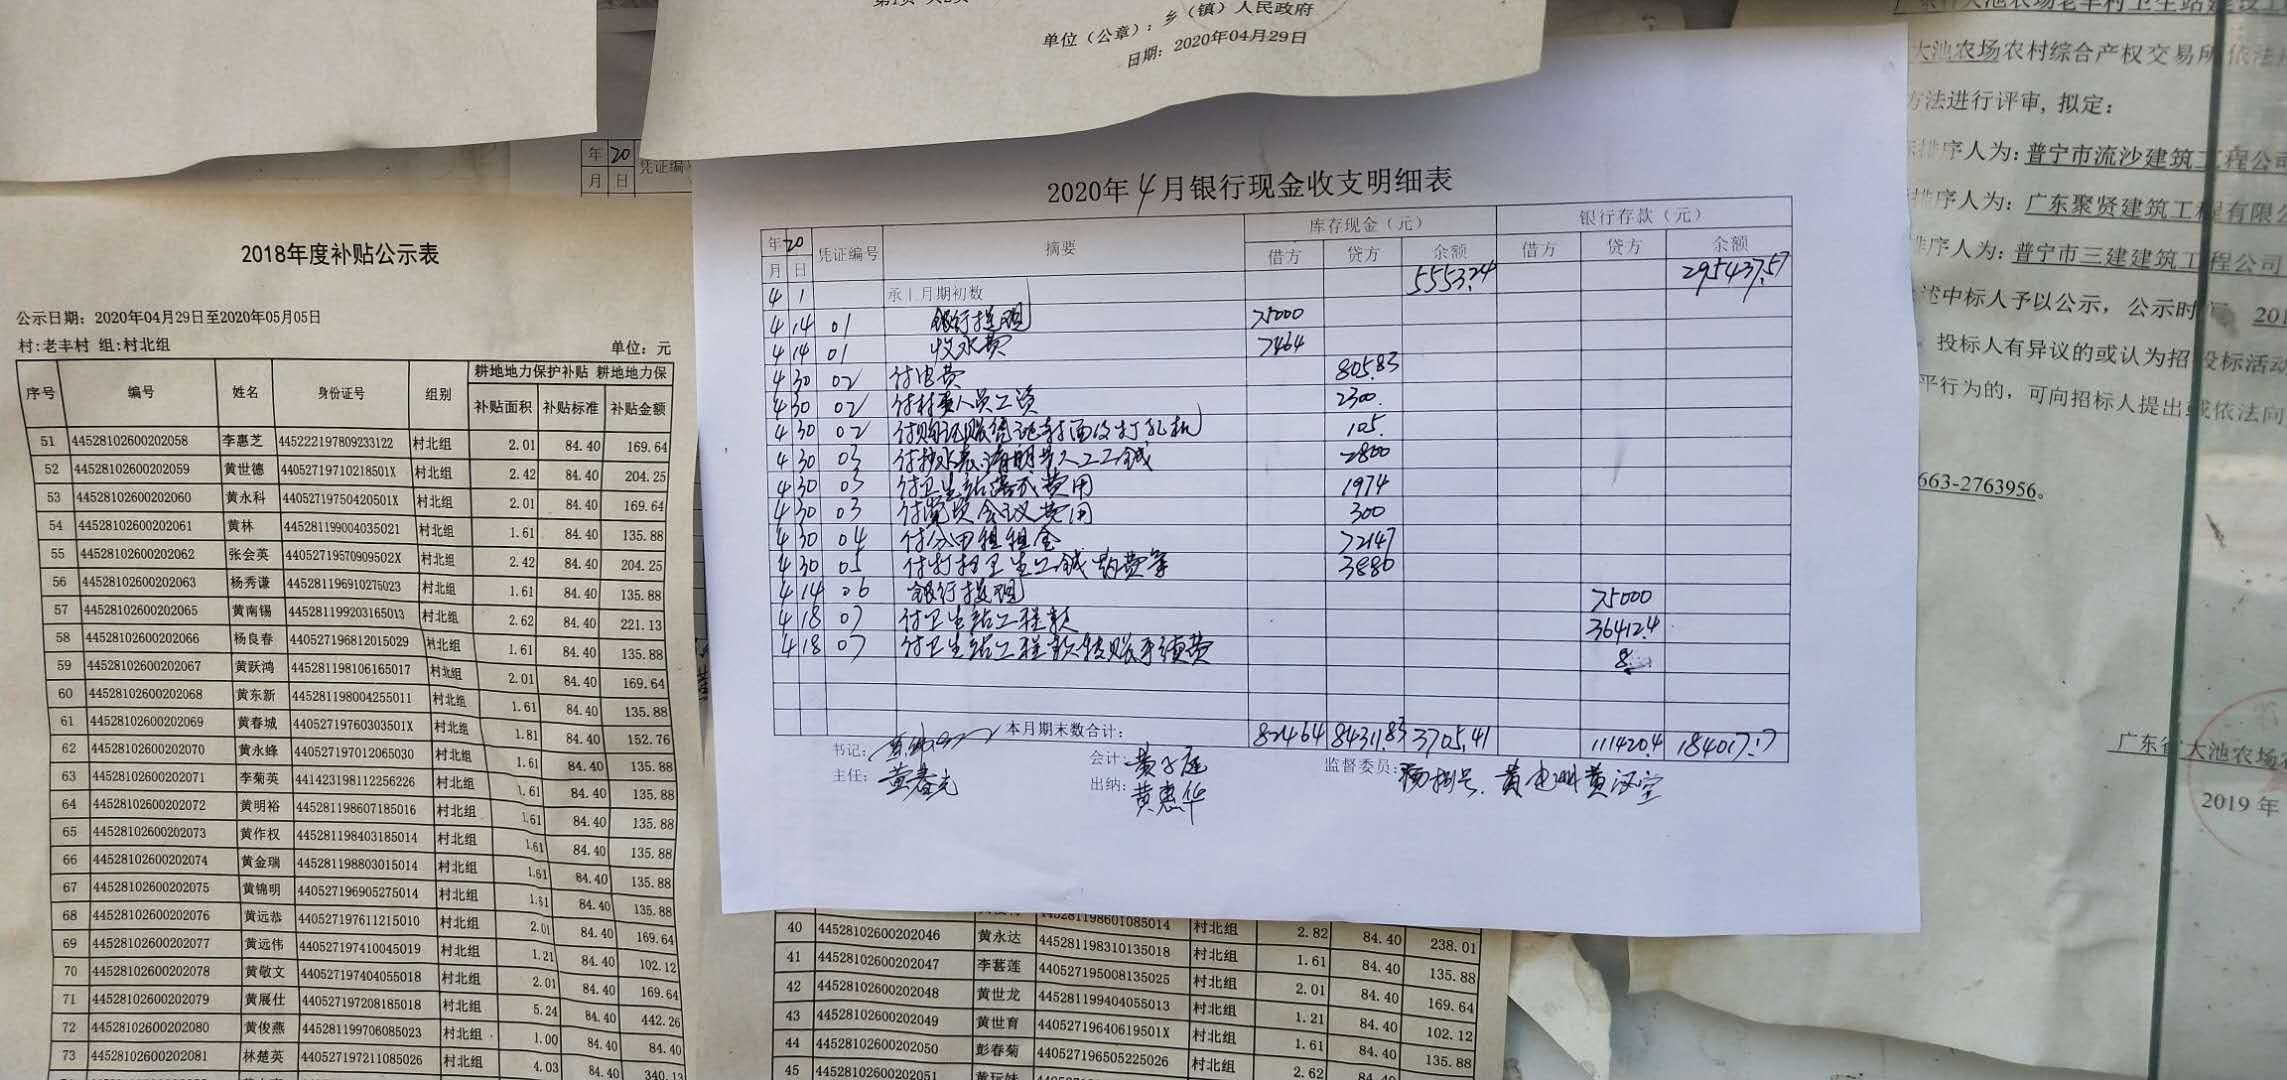 单位（公章）：乡（镇）人民政府
日期：2020年04月29日
年 20 凭证编
月 日
2018年度补贴公示表
公示日期：2020年04月29日至2020年05月05日
村:老丰村 组:村北组 单位：元
序号 编号 姓名 身份证号 组别 耕地地力保护补贴 耕地地力保
补贴面积 补贴标准 补贴金额
51 44528102600202058 李惠芝 445222197809233122 村北组 2.01 84.40 169.64
52 44528102600202059 黄世德 44052719710218501X 村北组 2.42 84.40 204.25
53 44528102600202060 黄永科 44052719750420501X 村北组 2.01 84.40 169.64
54 44528102600202061 黄林 445281199004035021 村北组 1.61 84.40 135.88
55 44528102600202062 张会英 44052719570909502X 村北组 2.42 84.40 204.25
56 44528102600202063 杨秀谦 445281196910275023 村北组 1.61 84.40 135.88
57 44528102600202065 黄南锡 445281199203165013 村北组 2.62 84.40 221.13
58 44528102600202066 杨良春 440527196812015029 村北组 1.61 84.40 135.88
59 44528102600202067 黄跃鸿 445281198106165017 村北组 2.01 84.40 169.64
60 44528102600202068 黄东新 445281198004255011 村北组 1.61 84.40 135.88
61 44528102600202069 黄春城 44052719760303501X 村北组 1.81 84.40 152.76
62 44528102600202070 黄永蜂 440527197012065030 村北组 1.61 84.40 135.88
63 44528102600202071 李菊英 441423198112256226 村北组 1.61 84.40 135.88
64 44528102600202072 黄明裕 445281198607185016 村北组 1.61 84.40 135.88
65 44528102600202073 黄作权 445281198403185014 村北组 1.61 84.40 135.88
66 44528102600202074 黄金瑞 445281198803015014 村北组 1.61 84.40 135.88
67 44528102600202075 黄锦明 440527196905275014 村北组 1.61 84.40 135.88
68 44528102600202076 黄远恭 440527197611215010 村北组 2.01 84.40 169.64
69 44528102600202077 黄远伟 440527197410045019 村北组 1.21 84.40 102.12
70 44528102600202078 黄敬文 440527197404055018 村北组 2.01 84.40 169.64
71 44528102600202079 黄展仕 440527197208185018 村北组 5.24 84.40 442.26
72 44528102600202080 黄俊燕 445281199706085023 村北组 1.00 84.40 84.40
73 44528102600202081 林楚英 440527197211085026 村北组 4.03 84.40 340.13
2020年4月银行现金收支明细表
年 20 凭证编号 摘要 库存现金（元） 银行存款（元）
月 日 借方 贷方 余额 借方 贷方 余额
4 1 承上月期初数 5553.24 295437.57
4 14 01 银行提现 75000
4 14 01 收水费 7464
4 30 02 付电费 805.83
4 30 02 付村委人员工资 2300.
4 30 02 付购记账凭证封面及打孔机 105.
4 30 03 付抄水表、清明 人工工钱 2800
4 30 03 付卫生站 费用 1974
4 30 03 付党员会议费用 300
4 30 04 付公田租租金 72147
4 30 05 付打扫卫生工钱 费等 3880
4 14 06 银行提现 75000
4 18 07 付卫生站工程款 36412.4
4 18 07 付卫生站工程款转账手续费 8
本月期末数合计： 82464 84311.83 3705.41 111420.4 184017.17
书记： 会计： 监督委员：
主任：黄春光 出纳：黄惠华 黄汉宝
40 44528102600202046 黄永达 445281198310135018 村北组 2.82 84.40 238.01
41 44528102600202047 李葚莲 440527195008135025 村北组 1.61 84.40 135.88
42 44528102600202048 黄世龙 445281199404055013 村北组 2.01 84.40 169.64
43 44528102600202049 黄世育 44052719640619501X 村北组 1.21 84.40 102.12
44 44528102600202050 彭春菊 440527196505225026 村北组 1.61 84.40 135.88
45 44528102600202051 村北组 2.62
广东省大池农场老丰村卫生站建设工程
大池农场农村综合产权交易所依法
方法进行评审, 拟定：
排序人为: 普宁市流沙建筑工程公司
排序人为: 广东聚贤建筑工程有限公
排序人为: 普宁市三建建筑工程公司
述中标人予以公示，公示时 201
投标人有异议的或认为招投标活动
平行为的，可向招标人提出或依法向
663-2763956。
广东省大池农场
2019 年